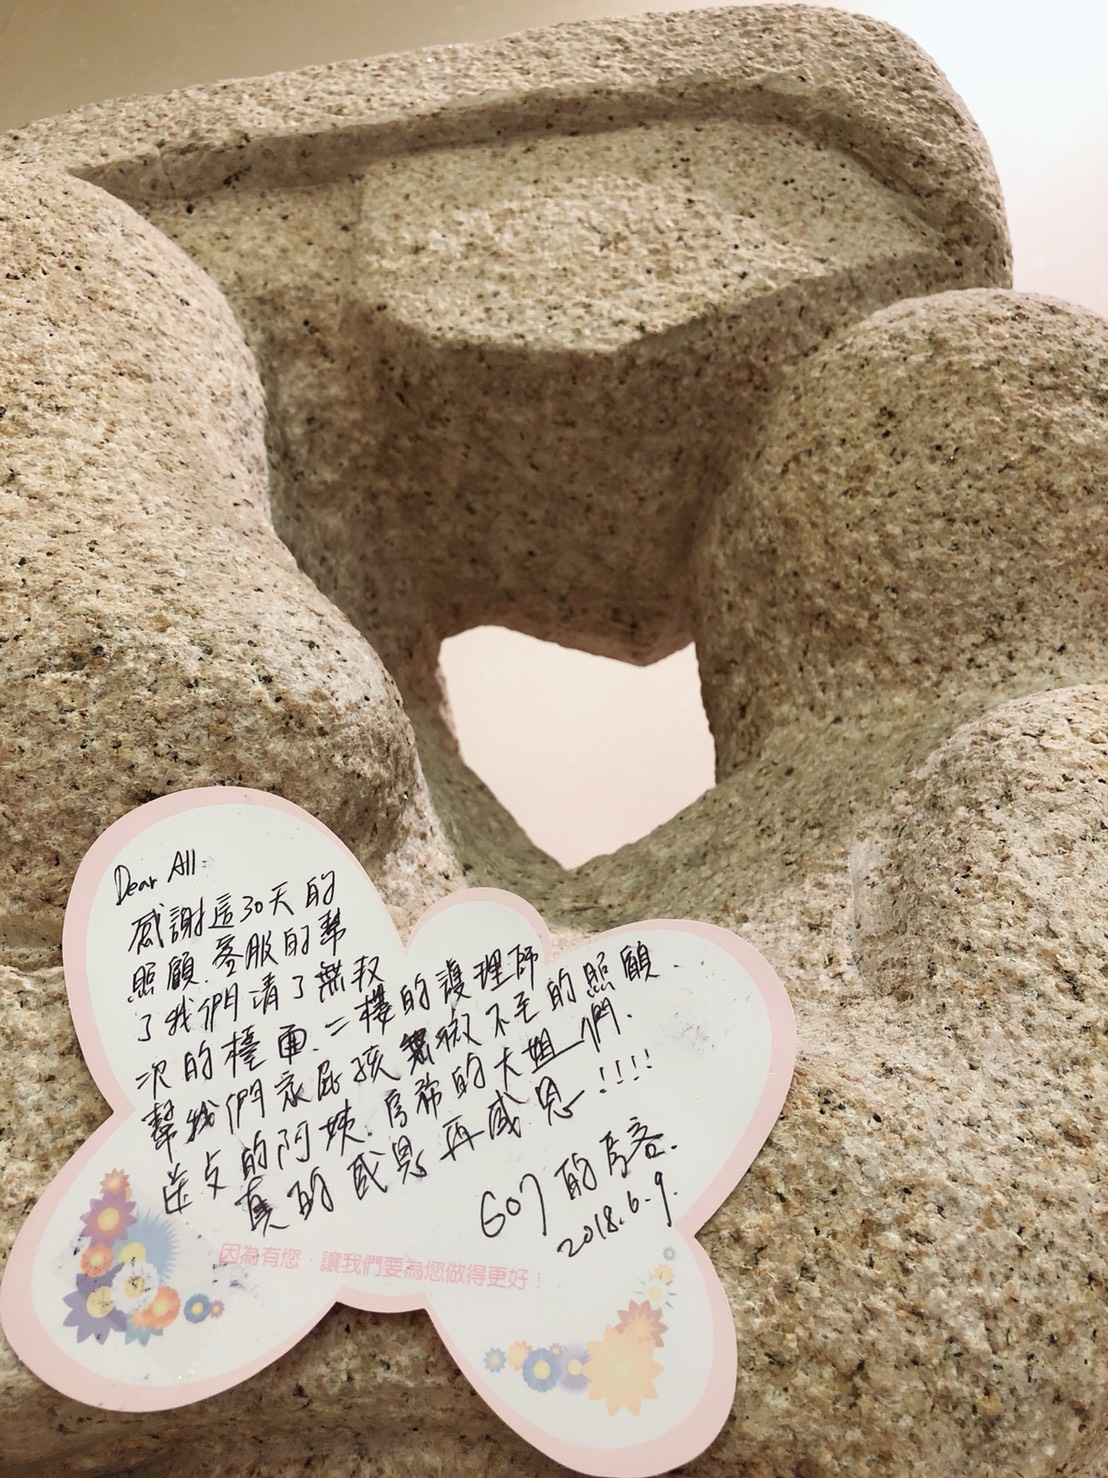 Dear All:
感謝這30天的
照顧.客服的幫
了我們清了無數
次的檯面.二樓的護理師
幫我們家屁孩無微不至的照顧.
送餐的阿姨.房務的大姐們.
真的感恩再感恩!!!!
607的房客.
2018.6.9.
因為有您,讓我們要為您做得更好!